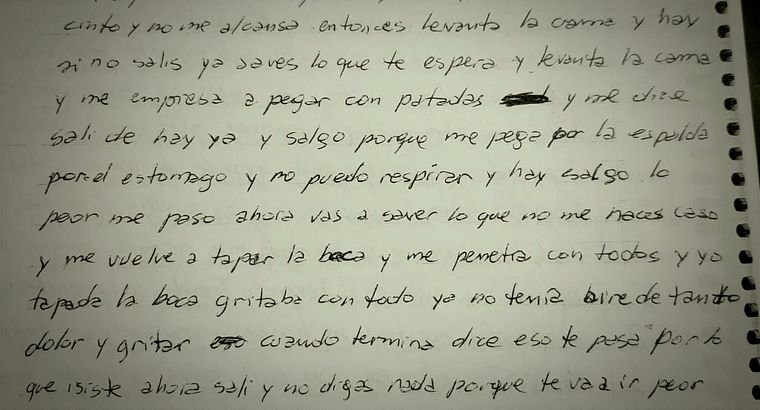 cinto y no me alcansa entonces levanta la cama y hay
si no salis ya saves lo que te espera y levanta la cama
y me empresa a pegar con patadas y me dice
sali de hay ya y salgo porque me pega por la espalda
por el estomago y no puedo respirar y hay salgo lo
peor me paso ahora vas a saver lo que no me haces caso
y me vuelve a tapar la boca y me penetra con todos y yo
tapada la boca gritaba con todo ya no tenia aire de tanto
dolor y gritar cuando termina dice eso te pasa por lo
que isiste ahora sali y no digas nada porque te va a ir peor